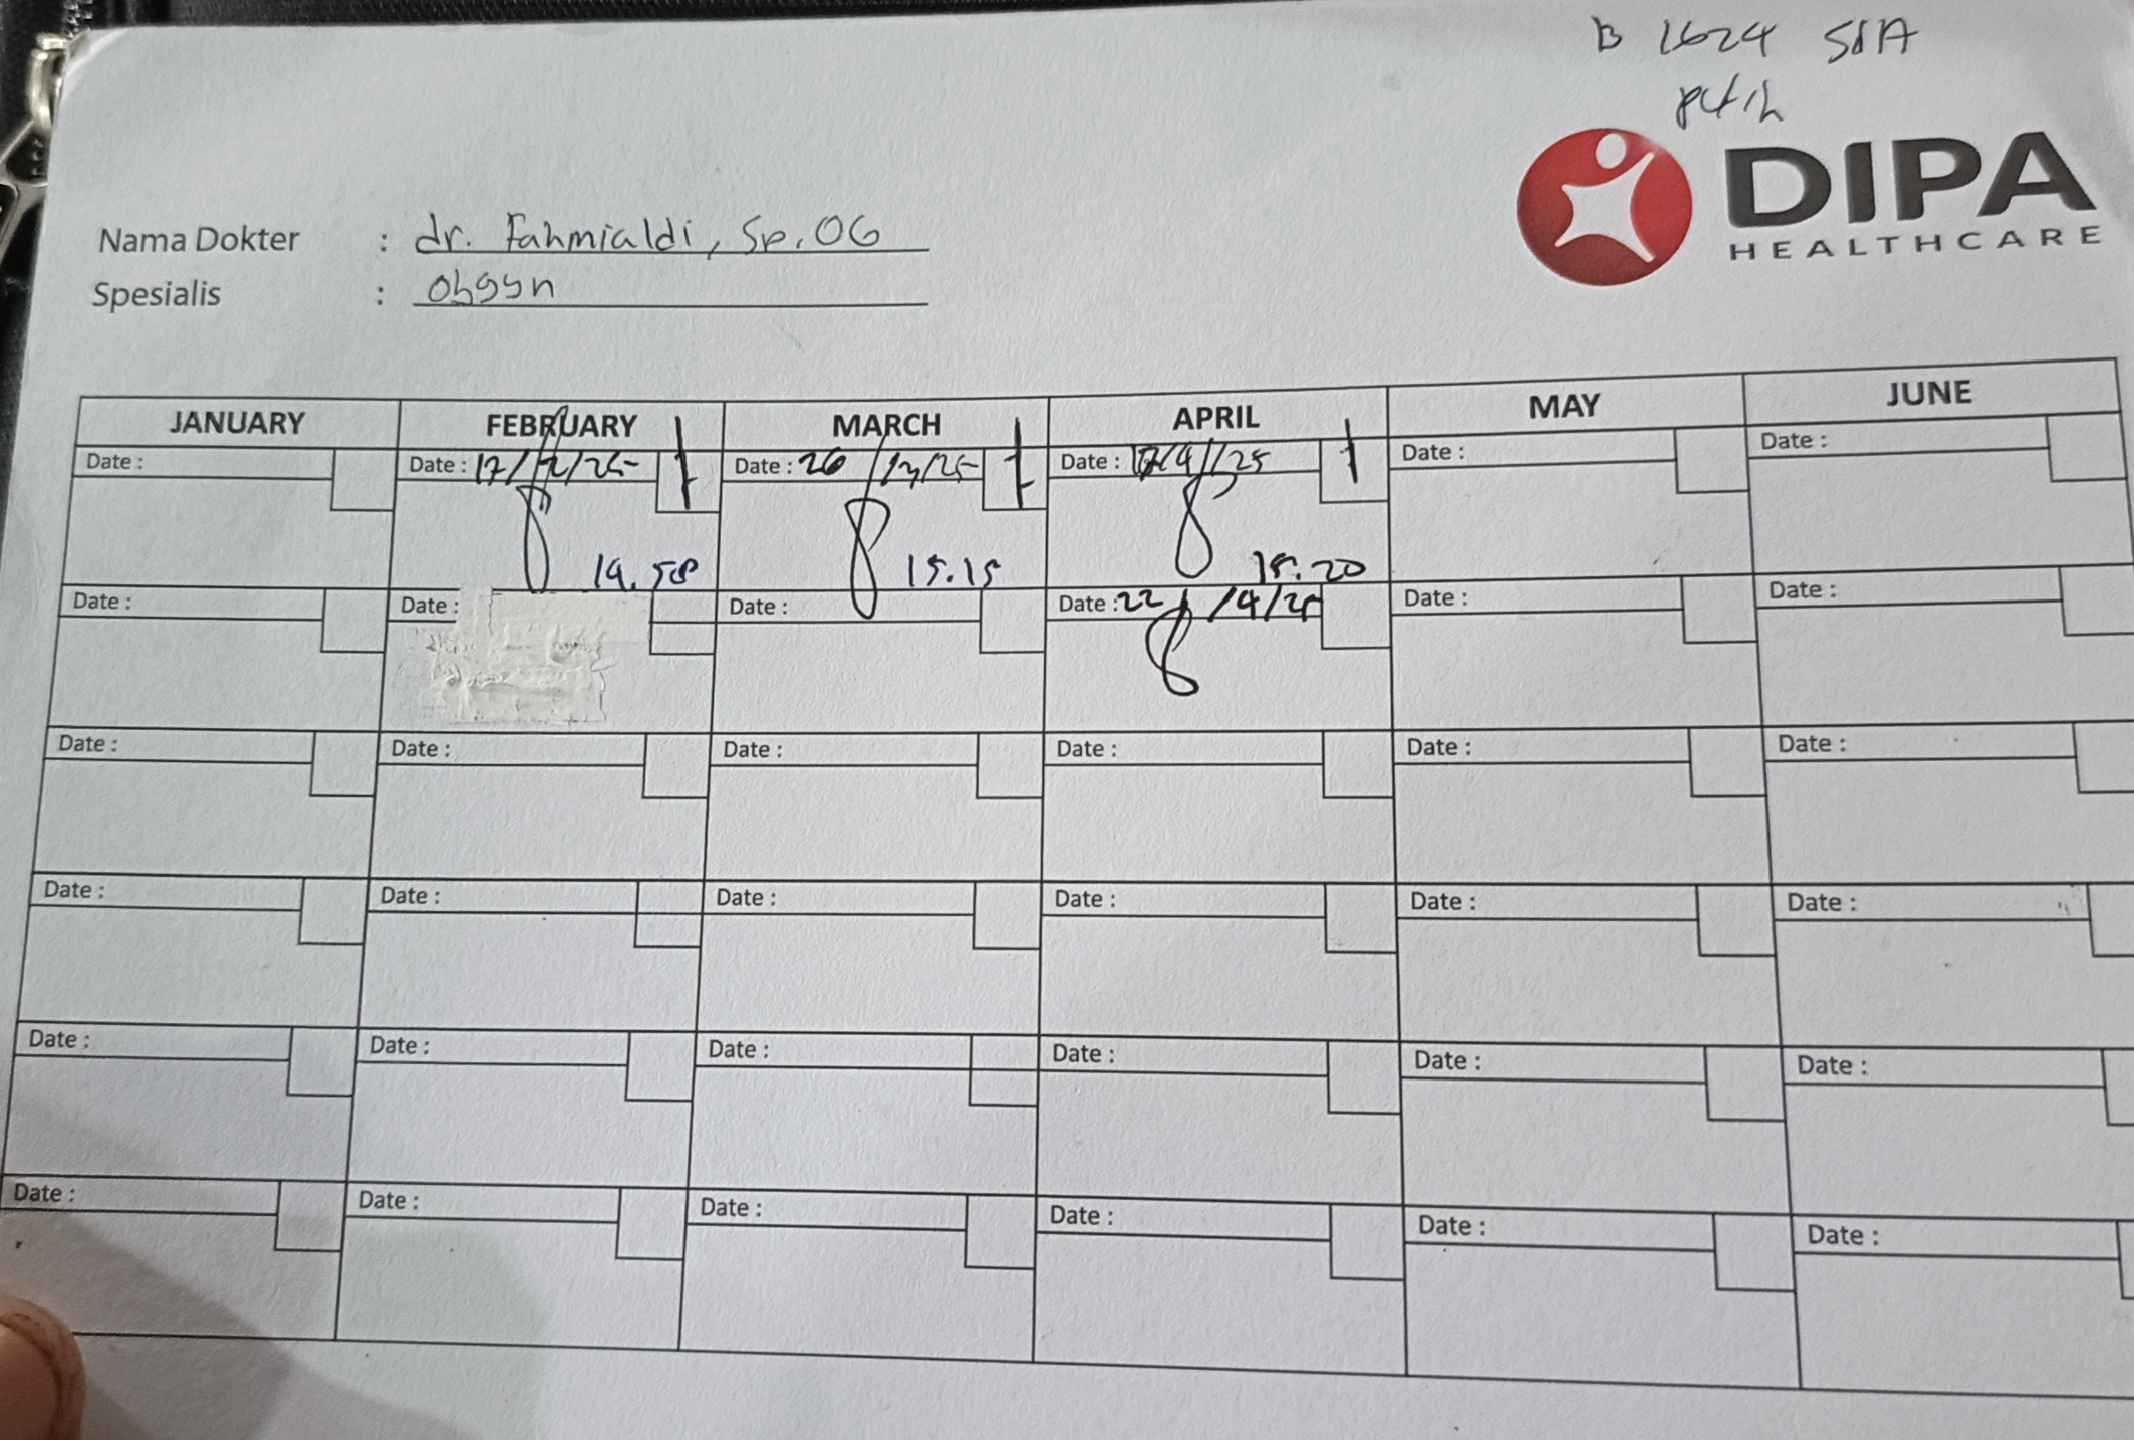 B 1624 SSA
putih
DIPA
HEALTHCARE
Nama Dokter : dr. Fahmialdi, Sp.OG
Spesialis : Obgyn
JANUARY FEBRUARY MARCH APRIL MAY JUNE
Date : Date : 17/2/25 Date : 26/3/25 Date : /4/25 Date : Date :
19.58 15.15 15.20
Date : Date : Date : Date : 22/4/25 Date : Date :
Date : Date : Date : Date : Date : Date :
Date : Date : Date : Date : Date : Date :
Date : Date : Date : Date : Date : Date :
Date : Date : Date : Date : Date : Date :